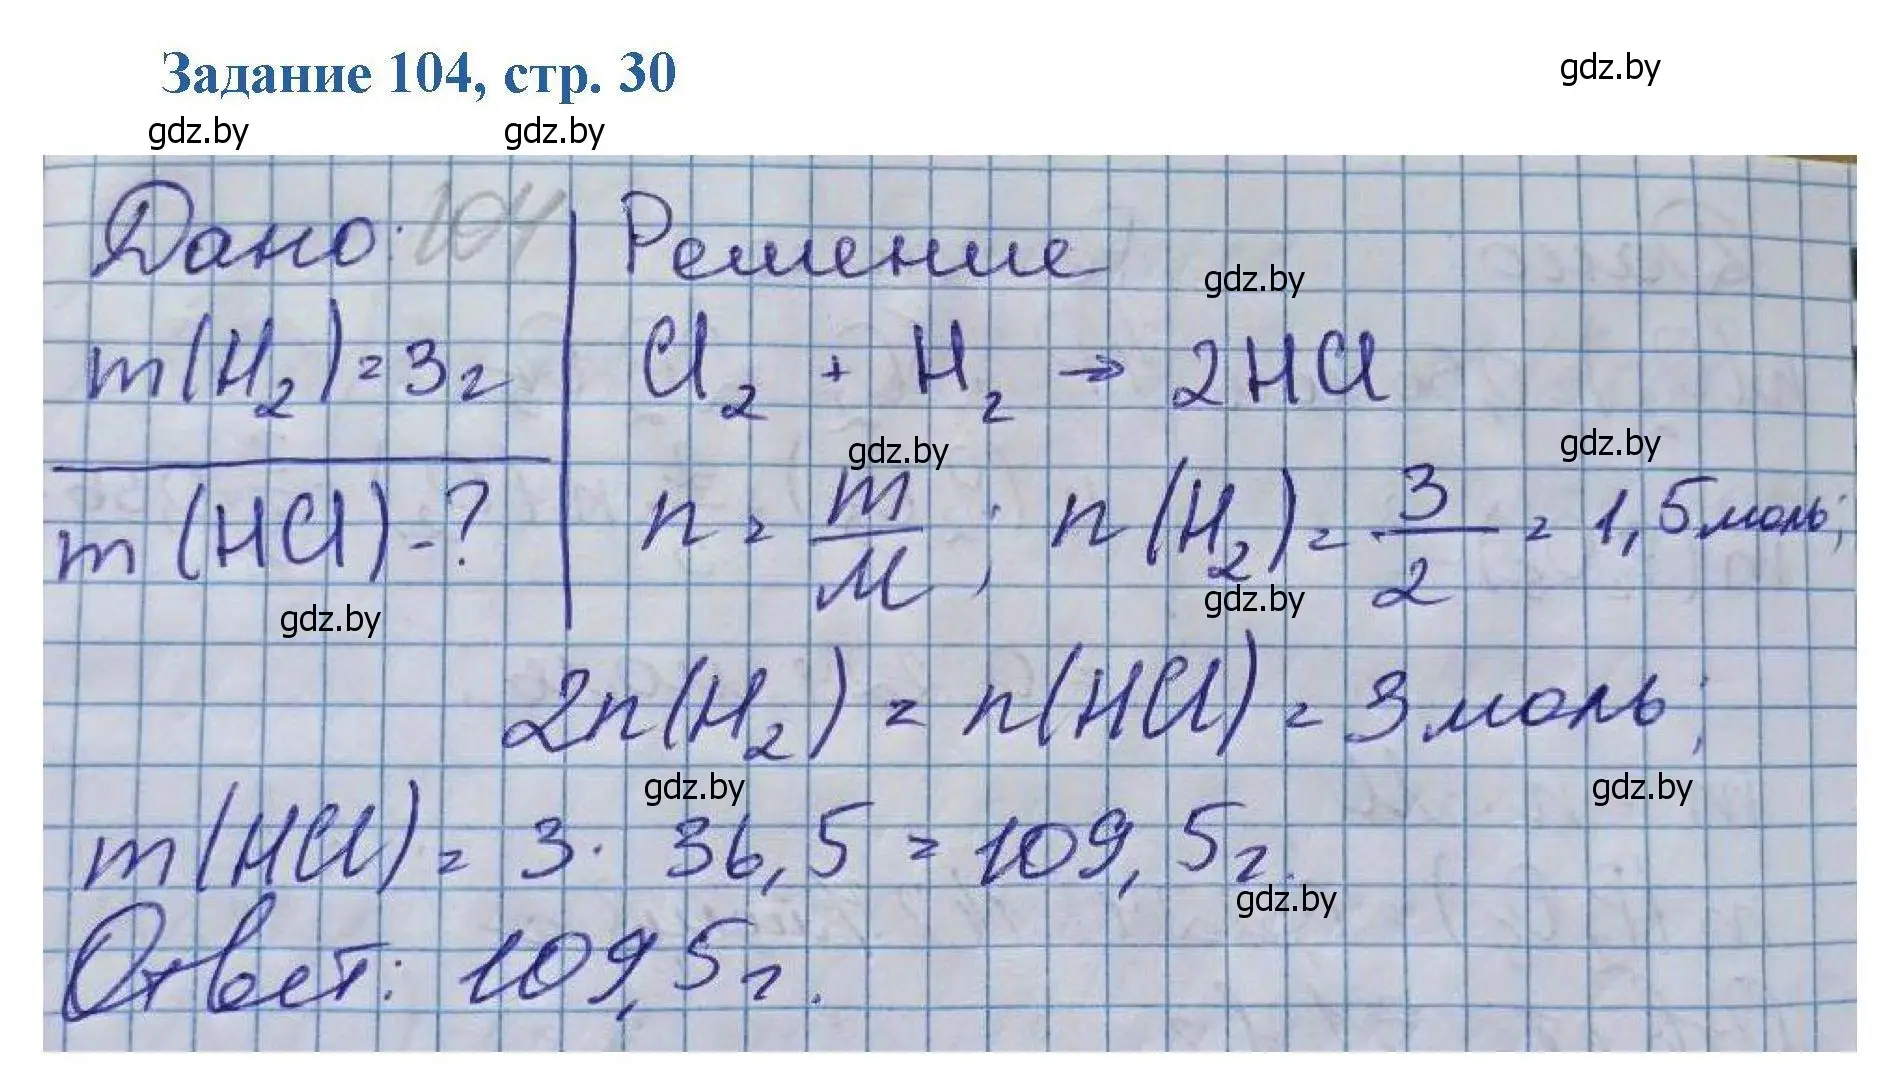 Задание 104, стр. 30
gdz.by
gdz.by gdz.by
Дано: 104
Решение
gdz.by
m(H₂) = 3г
Cl₂ + H₂ → 2HCl
gdz.by
gdz.by
m(HCl) - ?
n = m/M; n(H₂) = 3/2 = 1,5 моль;
gdz.by
gdz.by
2n(H₂) = n(HCl) = 3 моль;
gdz.by
gdz.by
m(HCl) = 3 · 36,5 = 109,5 г.
gdz.by
Ответ: 109,5 г.